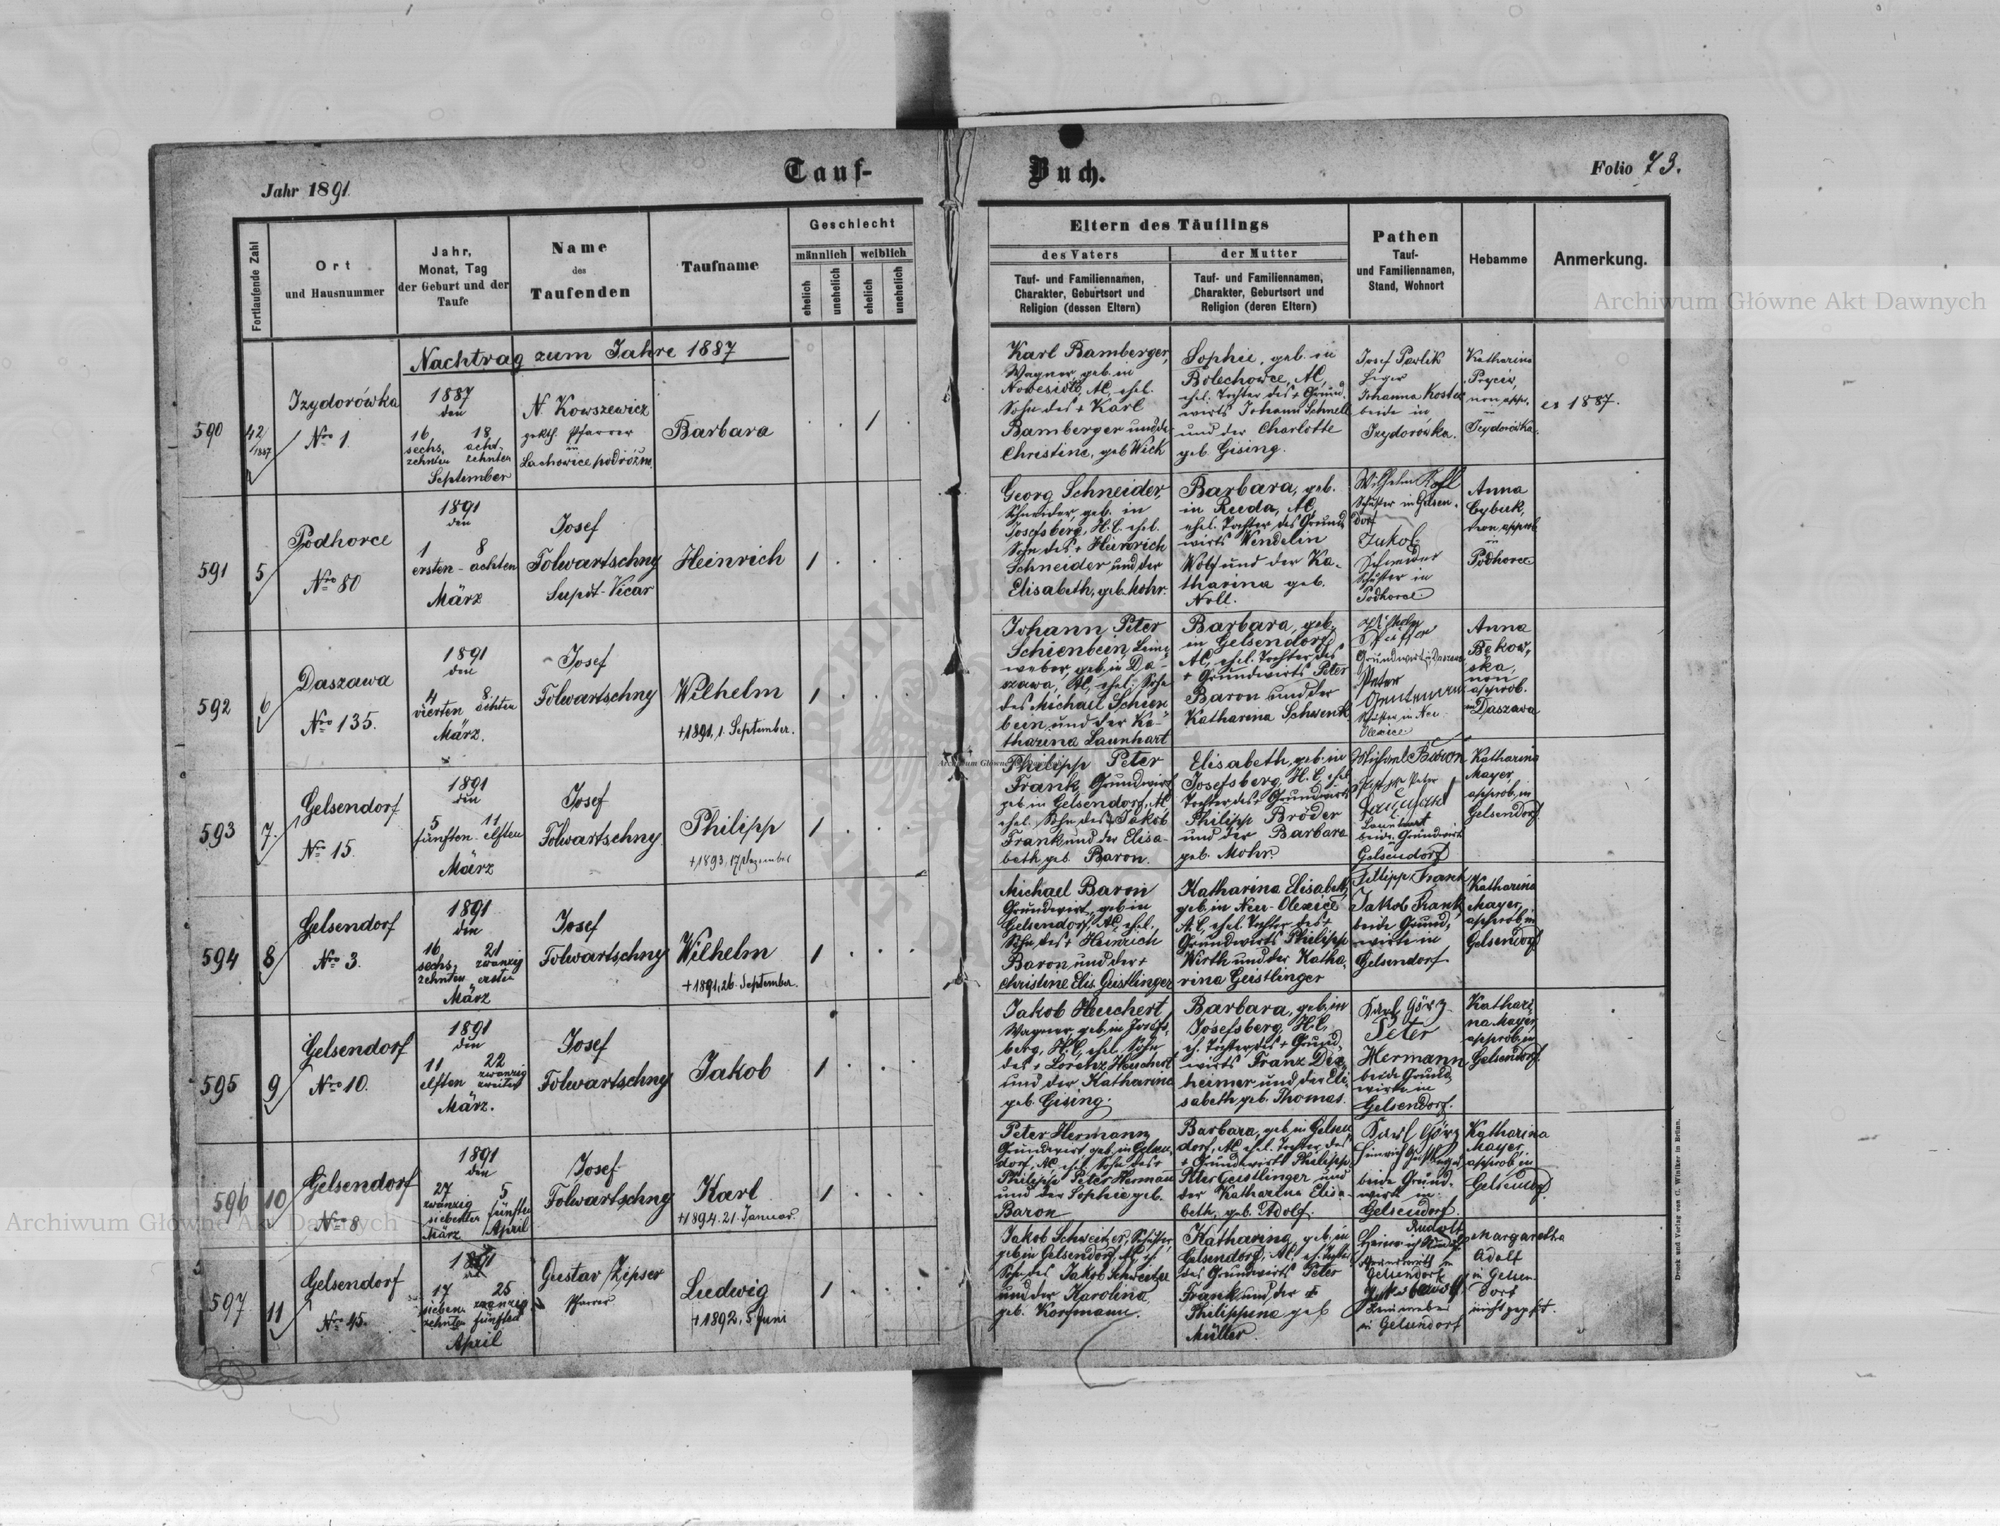 Jahr 1891.
Tauf-
Buch.
Folio 73.
Fortlaufende Zahl
Ort
und Hausnummer
Jahr,
Monat, Tag
der Geburt und der
Taufe
Name
des
Taufenden
Taufname
Geschlecht
männlich
weiblich
ehelich
unehelich
ehelich
unehelich
Eltern des Täuflings
des Vaters
Tauf- und Familiennamen,
Charakter, Geburtsort und
Religion (dessen Eltern)
der Mutter
Tauf- und Familiennamen,
Charakter, Geburtsort und
Religion (deren Eltern)
Pathen
Tauf-
und Familiennamen,
Stand, Wohnort
Hebamme
Anmerkung.
Nachtrag zum Jahre 1887
590
42/1887
Izydorówka
Nro 1.
1887
den
16 18
sechs, acht-
zehnten zehnten
September
N. Kowszewicz
Pfarrer
in
Lachowice podróżne
Barbara
1
Karl Bamberger,
Wagner, geb. in
AC, ehel.
Sohn des + Karl
Bamberger und der
Christine, geb. Wick
Sophie, geb. in
Bolechowce, AC,
ehel. Tochter des + Grund-
wirts Johann Schnell
und der Charlotte
geb. Gising.
Josef Pawlik
Johanna Kostea
beide in
Izydorówka.
Katharina
non appr.
in
Izydorówka
1887.
591
5
Podhorce
Nro 80
1891
den
1 8
ersten - achten
März
Josef
Folwartschny
Supdt-Vicar
Heinrich
1
Georg Schneider,
Schneider, geb. in
Josefsberg, H.C. ehel.
Sohn des + Heinrich
Schneider und der
Elisabeth, geb. Mohr.
Barbara, geb.
in Ruda, AC,
ehel. Tochter des Grund-
wirts Wendelin
Wolf und der Ka-
tharina geb.
Noll.
Wilhelm
Schuster in Gelsen-
dorf
Jakob
Schneider
Schuster in
Podhorce
Anna
Cybuk,
non approb.
in
Podhorce
592
6
Daszawa
Nro 135.
1891
den
4 8
vierten achten
März.
Josef
Folwartschny
Wilhelm
+ 1891, 1. September.
1
Johann Peter
Schienbein, Leine-
weber, geb. in Da-
szawa, AC, ehel. Sohn
des Michael Schien-
bein und der Ka-
tharina Launhart
Barbara, geb.
in Gelsendorf
AC, ehel. Tochter des
+ Grundwirts Peter
Baron und der
Katharina Schwenk
Grundwirt in Daszawa
Peter
Schuster in Neu-
Olexice
Anna
Bękow-
ska,
non
approb.
in Daszawa
593
7.
Gelsendorf
Nro 15.
1891
den
5 11
fünften elften
März
Josef
Folwartschny.
Philipp
+ 1893. 17. Dezember
1
Philipp Peter
Frank, Grundwirt
geb. in Gelsendorf, AC
ehel. Sohn des + Jakob
Frank und der Elisa-
beth geb. Baron.
Elisabeth, geb. in
Josefsberg, H.C, ehel.
Tochter des + Grundwirts
Philipp Bröder
und der Barbara
geb. Mohr.
Michael Baron
Peter
Launhart
beide Grundwirte
Gelsendorf
Katharina
Mayer,
approb. in
Gelsendorf.
594
8
Gelsendorf
Nro 3.
1891
den
16 21
sechs, zwanzig
zehnten ersten
März
Josef
Folwartschny
Wilhelm
+ 1891, 26. September.
1
Michael Baron
Grundwirt, geb. in
Gelsendorf, AC, ehel.,
Sohn des + Heinrich
Baron und der +
Christine Elis. Geistlinger
Katharina Elisabeth,
geb. in Neu-Olexice,
A.C, ehel. Tochter des +
Grundwirts Philipp
Wirth und der Katha-
rina Geistlinger
Filipp Frank
Jakob Frank,
beide Grund-
wirte in
Gelsendorf.
Katharina
Mayer,
approb. in
Gelsendorf
595
9
Gelsendorf
Nro 10.
1891
den
11 22
elften zwanzig
zweiten
März.
Josef
Folwartschny
Jakob
1
Jakob Heuchert
Wagner, geb. in Josefs-
berg, H.C, ehel. Sohn
des + Lorenz Heuchert
und der Katharina
geb. Gising.
Barbara, geb. in
Josefsberg, H.C,
eh. Tochter des + Grund-
wirts Franz Die-
heimer und der Eli-
sabeth, geb. Thomas.
Karl Görz
Peter
Hermann
beide Grund-
wirte in
Gelsendorf.
Kathari-
na Mayer,
approb. in
Gelsendorf.
596
10
Gelsendorf
Nro 8
1891
den
27 5
zwanzig fünften
siebenten
März April
Josef
Folwartschny
Karl
+ 1894. 21. Januar.
1
Peter Hermann
Grundwirt, geb. in Gelsen-
dorf, AC, ehel. Sohn des +
Philipp Peter Hermann
und der Sophie geb.
Baron
Barbara, geb. in Gelsen-
dorf, AC, ehel. Tochter des
+ Grundwirts Philipp
Peter Geistlinger und
der Katharina Elisa-
beth, geb. Adolf.
Karl Görz
Heinrich
beide Grund-
wirte in
Gelsendorf.
Katharina
Mayer,
approb. in
Gelsendorf.
597
11
Gelsendorf
Nro 45.
1891
den
17 25
sieben- zwanzig
zehnten fünften
April
Gustav Zipser
Pfarrer
Ludwig
+ 1892, 5 Juni
1
Jakob Schweitzer, Schuster,
geb. in Gelsendorf, AC, eh.
Sohn des Jakob Schweitzer
und der Karolina
geb. Korfmann.
Katharina, geb. in
Gelsendorf, AC, eh. Tochter
des Grundwirts Peter
Frank und der +
Philippena geb
Müller.
Rudolf
Heinrich
Grundwirth in
Gelsendorf
Jakob
Leinweber
in Gelsendorf
Margaretha
Adolf
in Gelsen-
dorf
nicht geprft.
Druck und Verlag von C. Winiker in Brünn.
Archiwum Główne Akt Dawnych
Archiwum Główne Akt Dawnych